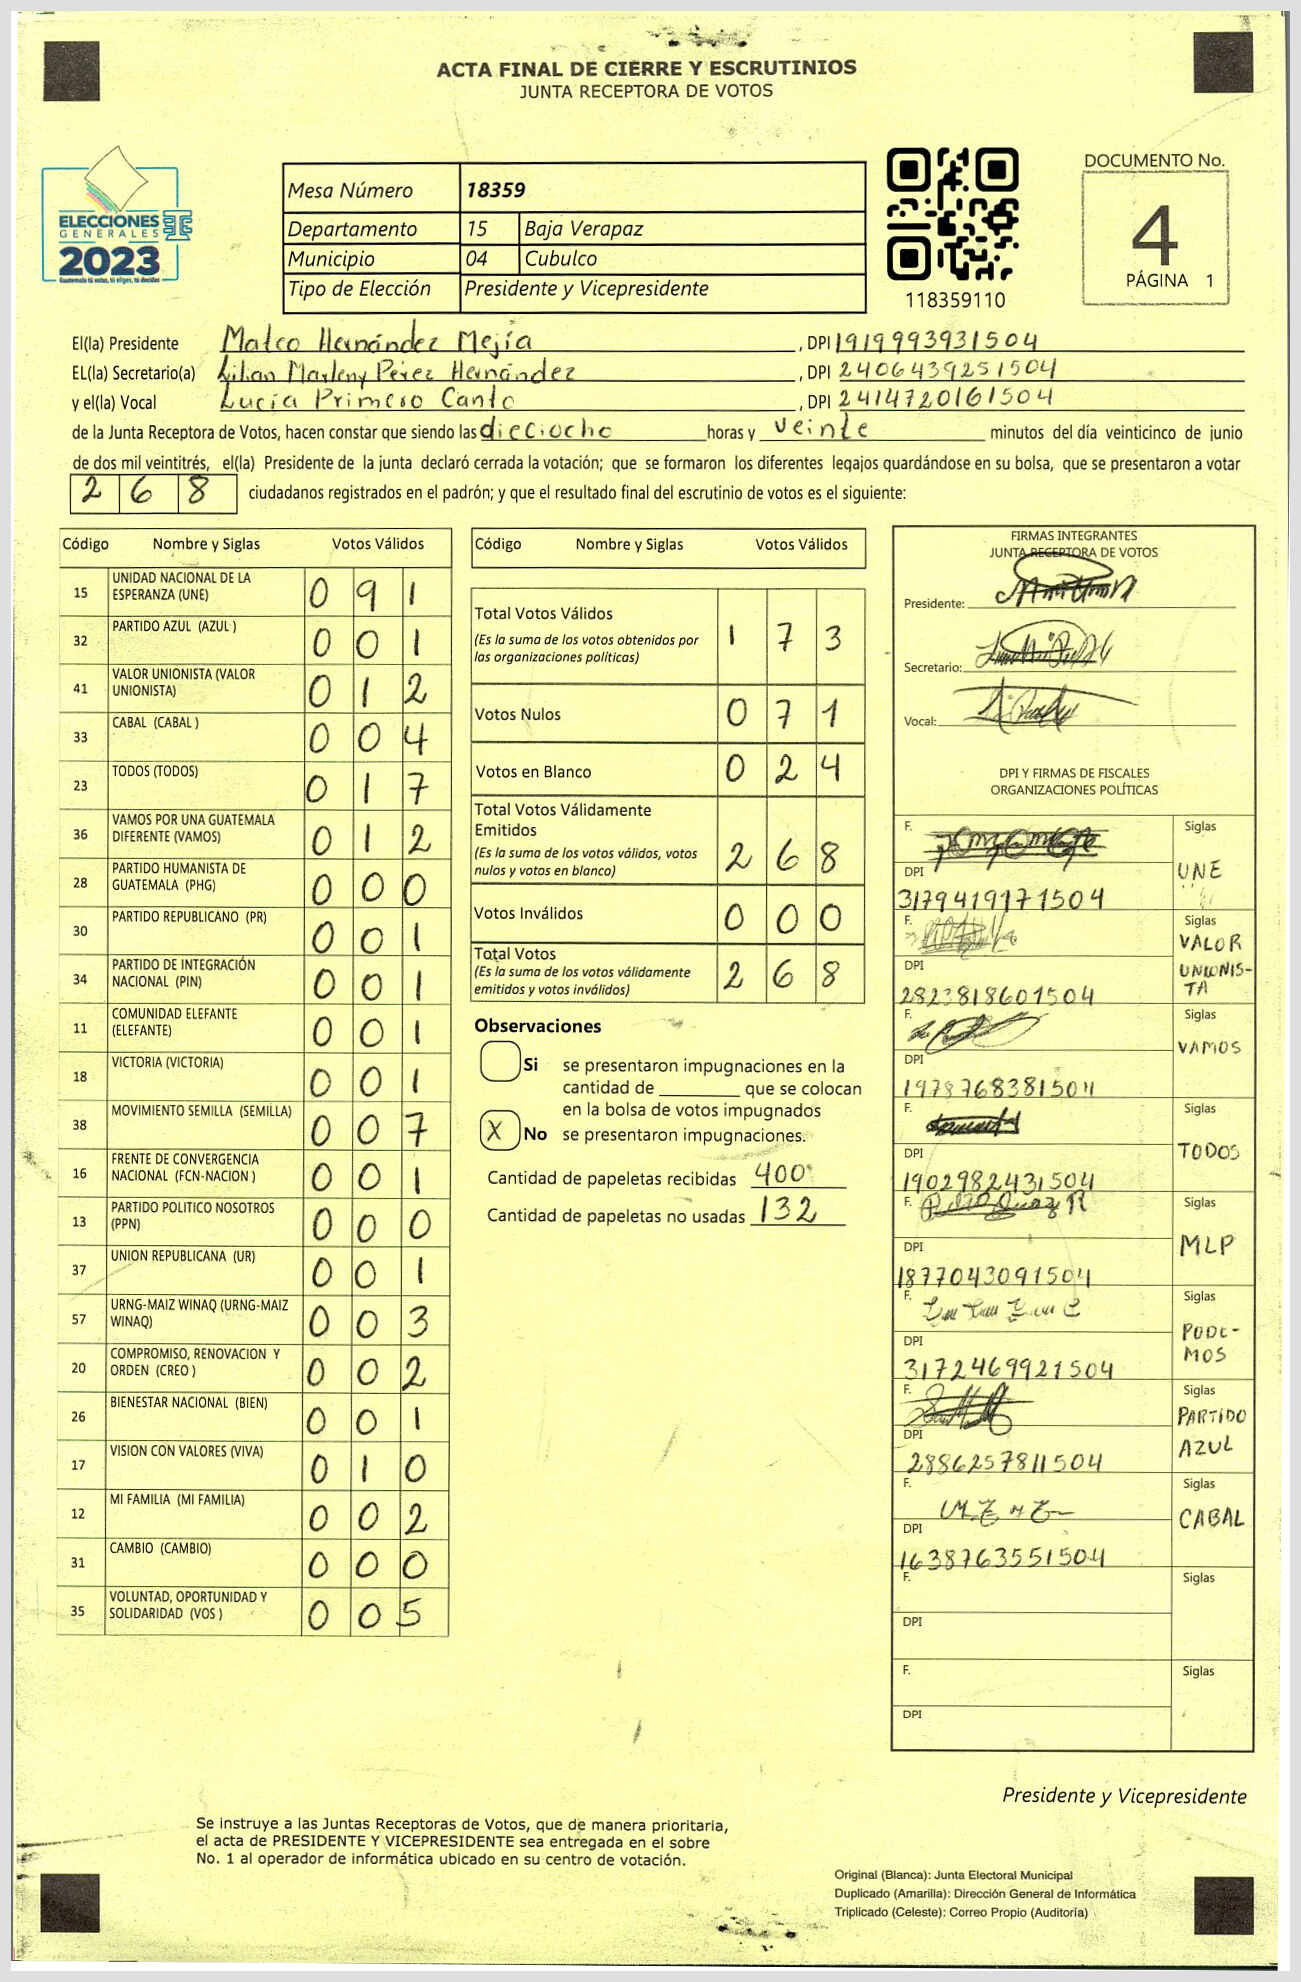 ACTA FINAL DE CIERRE Y ESCRUTINIOS
JUNTA RECEPTORA DE VOTOS
ELECCIONES
GENERALES
2023
Guatemala tú votas, tú eliges, tú decides
Mesa Número 18359
Departamento 15 Baja Verapaz
Municipio 04 Cubulco
Tipo de Elección Presidente y Vicepresidente
118359110
DOCUMENTO No.
4
PÁGINA 1
El(la) Presidente Mateo Hernández Mejía, DPI 1919993931504
EL(la) Secretario(a) Lilian Marleny Pérez Hernández, DPI 2406439251504
y el(la) Vocal Lucía Primero Canto, DPI 2414720161504
de la Junta Receptora de Votos, hacen constar que siendo las dieciocho horas y veinte minutos del día veinticinco de junio
de dos mil veintitrés, el(la) Presidente de la junta declaró cerrada la votación; que se formaron los diferentes legajos guardándose en su bolsa, que se presentaron a votar
268 ciudadanos registrados en el padrón; y que el resultado final del escrutinio de votos es el siguiente:
Código Nombre y Siglas Votos Válidos
15 UNIDAD NACIONAL DE LA ESPERANZA (UNE) 0 9 1
32 PARTIDO AZUL (AZUL ) 0 0 1
41 VALOR UNIONISTA (VALOR UNIONISTA) 0 1 2
33 CABAL (CABAL ) 0 0 4
23 TODOS (TODOS) 0 1 7
36 VAMOS POR UNA GUATEMALA DIFERENTE (VAMOS) 0 1 2
28 PARTIDO HUMANISTA DE GUATEMALA (PHG) 0 0 0
30 PARTIDO REPUBLICANO (PR) 0 0 1
34 PARTIDO DE INTEGRACIÓN NACIONAL (PIN) 0 0 1
11 COMUNIDAD ELEFANTE (ELEFANTE) 0 0 1
18 VICTORIA (VICTORIA) 0 0 1
38 MOVIMIENTO SEMILLA (SEMILLA) 0 0 7
16 FRENTE DE CONVERGENCIA NACIONAL (FCN-NACION ) 0 0 1
13 PARTIDO POLITICO NOSOTROS (PPN) 0 0 0
37 UNION REPUBLICANA (UR) 0 0 1
57 URNG-MAIZ WINAQ (URNG-MAIZ WINAQ) 0 0 3
20 COMPROMISO, RENOVACION Y ORDEN (CREO ) 0 0 2
26 BIENESTAR NACIONAL (BIEN) 0 0 1
17 VISION CON VALORES (VIVA) 0 1 0
12 MI FAMILIA (MI FAMILIA) 0 0 2
31 CAMBIO (CAMBIO) 0 0 0
35 VOLUNTAD, OPORTUNIDAD Y SOLIDARIDAD (VOS ) 0 0 5
Código Nombre y Siglas Votos Válidos
Total Votos Válidos 1 7 3
(Es la suma de los votos obtenidos por
las organizaciones políticas)
Votos Nulos 0 7 1
Votos en Blanco 0 2 4
Total Votos Válidamente
Emitidos
(Es la suma de los votos válidos, votos
nulos y votos en blanco) 2 6 8
Votos Inválidos 0 0 0
Total Votos
(Es la suma de los votos válidamente
emitidos y votos inválidos) 2 6 8
Observaciones
Si se presentaron impugnaciones en la
cantidad de ________ que se colocan
en la bolsa de votos impugnados
X No se presentaron impugnaciones.
Cantidad de papeletas recibidas 400
Cantidad de papeletas no usadas 132
FIRMAS INTEGRANTES
JUNTA RECEPTORA DE VOTOS
Presidente:
Secretario:
Vocal:
DPI Y FIRMAS DE FISCALES
ORGANIZACIONES POLÍTICAS
F. Siglas
DPI UNE
3179419171504
F. Siglas
VALOR
DPI UNIONIS-
TA
2823818601504
F. Siglas
DPI VAMOS
1978768381504
F. Siglas
DPI TODOS
1902982431504
F. Siglas
DPI MLP
1877043091504
F. Siglas
PODE-
DPI MOS
3172469921504
F. Siglas
PARTIDO
DPI AZUL
2886257811504
F. Siglas
DPI CABAL
1638763551504
F. Siglas
DPI
F. Siglas
DPI
Presidente y Vicepresidente
Se instruye a las Juntas Receptoras de Votos, que de manera prioritaria,
el acta de PRESIDENTE Y VICEPRESIDENTE sea entregada en el sobre
No. 1 al operador de informática ubicado en su centro de votación.
Original (Blanca): Junta Electoral Municipal
Duplicado (Amarilla): Dirección General de Informática
Triplicado (Celeste): Correo Propio (Auditoría)